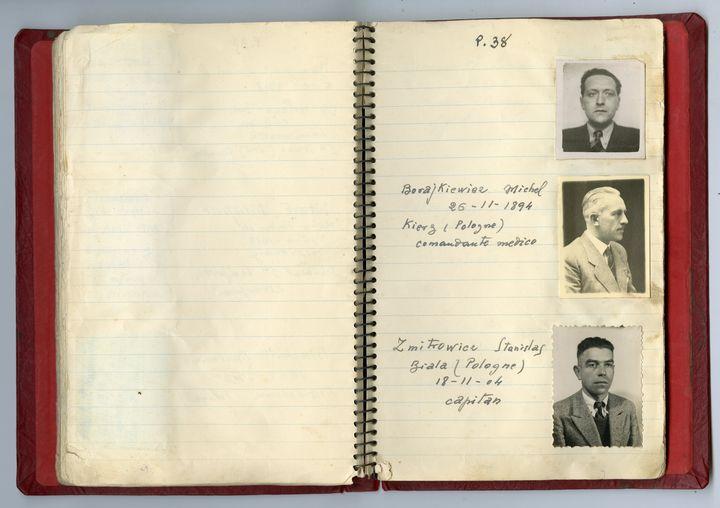 P. 38
Borajkiewicz Michel
26-11-1894
Kierz (Pologne)
comandante medico
Zmitrowicz Stanislas
Biala (Pologne)
18-11-04
capitan